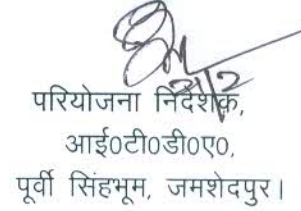 21/2
परियोजना निदेशक,
आई०टी०डी०ए०,
पूर्वी सिंहभूम, जमशेदपुर।